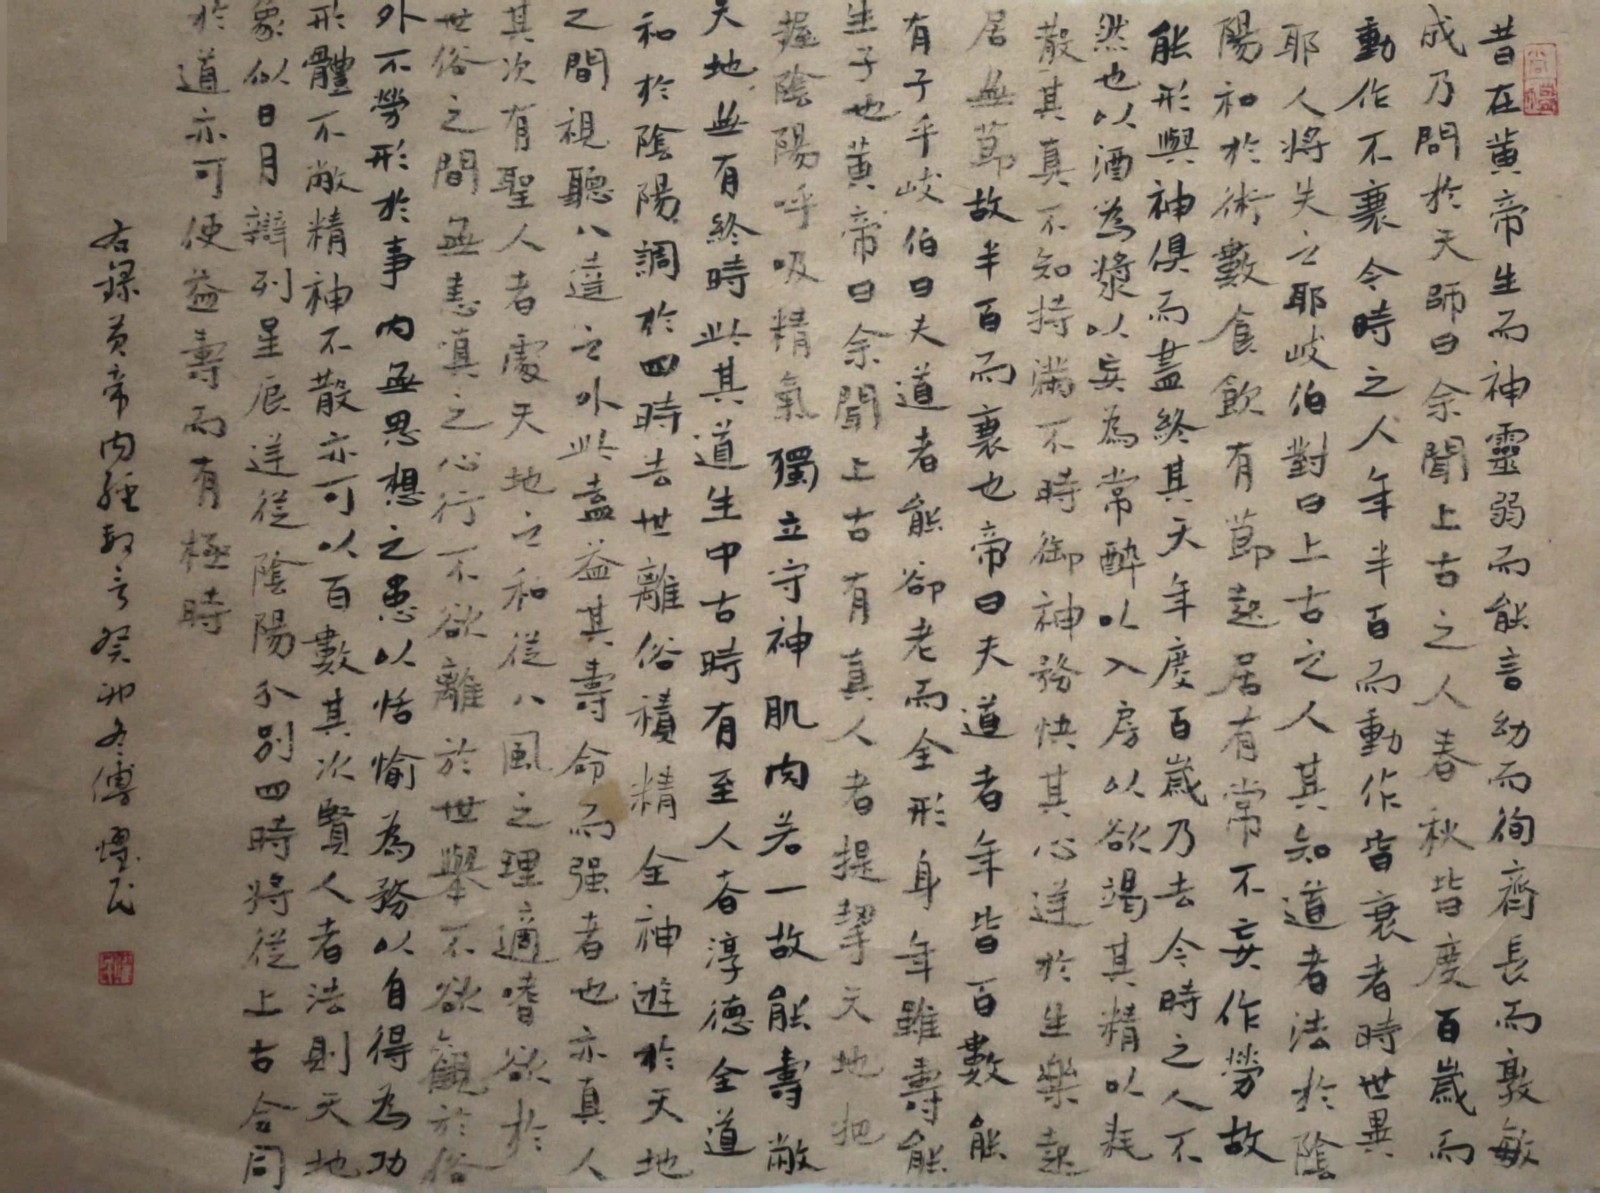 昔在黃帝生而神靈弱而能言幼而徇齊長而敦敏
成乃問於天師曰余聞上古之人春秋皆度百歲而
動作不衰今時之人年半百而動作皆衰者時世異
耶人將失之耶歧伯對曰上古之人其知道者法於陰
陽和於術數食飲有節起居有常不妄作勞故
能形與神俱而盡終其天年度百歲乃去今時之人不
然也以酒為漿以妄為常醉以入房以欲竭其精以耗
散其真不知持滿不時御神務快其心逆於生樂起
居無節故半百而衰也帝曰夫道者年皆百數能
有子乎歧伯曰夫道者能卻老而全形身年雖壽能
生子也黃帝曰余聞上古有真人者提挈天地把
握陰陽呼吸精氣獨立守神肌肉若一故能壽敝
天地無有終時此其道生中古時有至人者淳德全道
和於陰陽調於四時去世離俗積精全神遊於天地
之間視聽八達之外此蓋益其壽命而強者也亦真人
其次有聖人者處天地之和從八風之理適嗜欲於
世俗之間無恚嗔之心行不欲離於世舉不欲觀於俗
外不勞形於事內無思想之患以恬愉為務以自得為功
形體不敝精神不散亦可以百數其次賢人者法則天地
象似日月辯列星辰逆從陰陽分別四時將從上古合同
於道亦可使益壽而有極時
右錄黃帝內經 癸卯冬傅